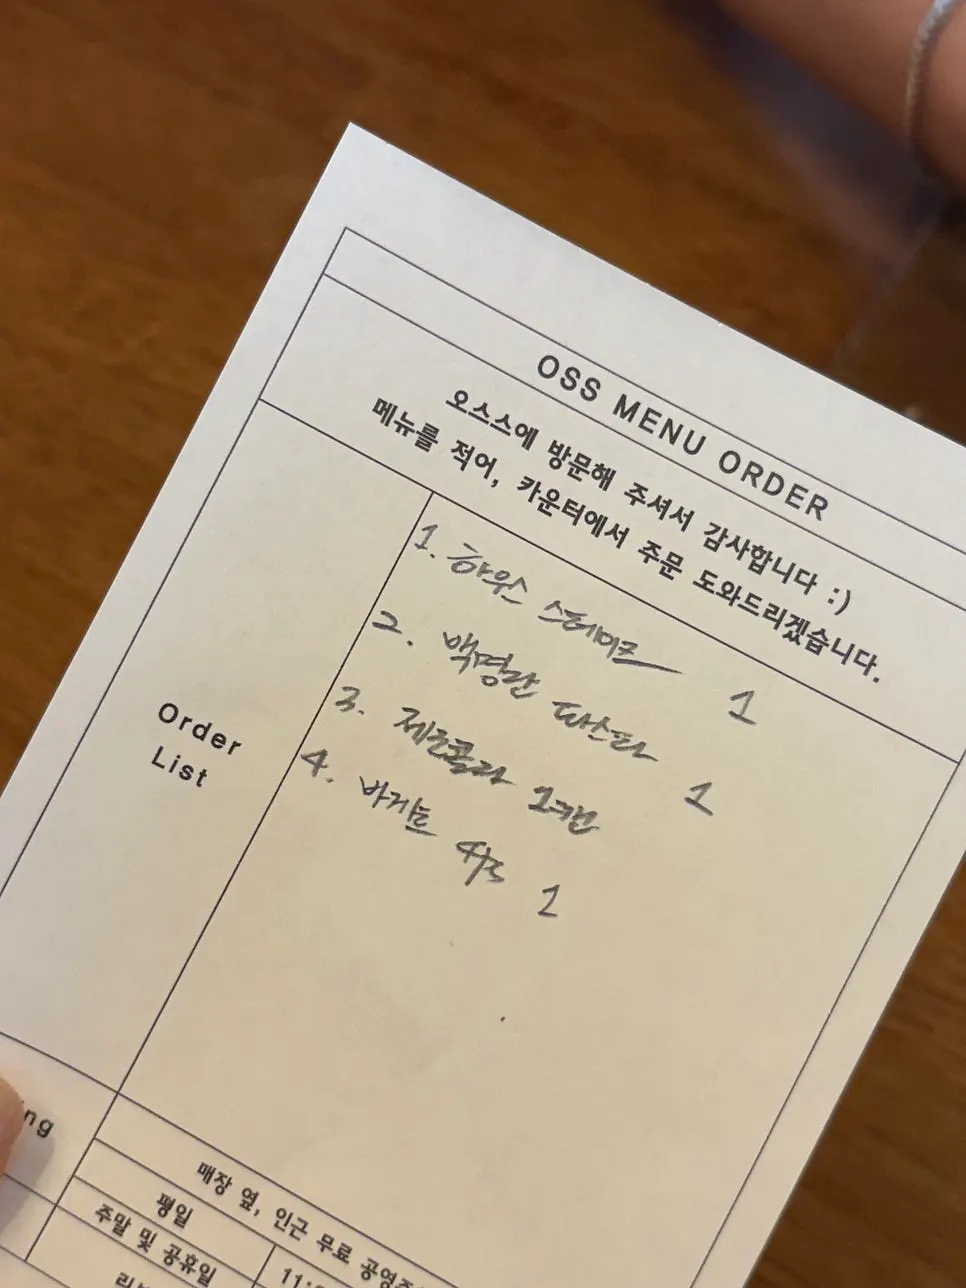 OSS MENU ORDER
오스스에 방문해 주셔서 감사합니다 :)
메뉴를 적어, 카운터에서 주문 도와드리겠습니다.
Order
List
1. 하우스 스테이크 1
2. 백명란 파스타 1
3. 제로콜라 1캔
4. 바게트 4/5 1
ng
매장 옆, 인근 무료 공영주
평일
주말 및 공휴일
11: